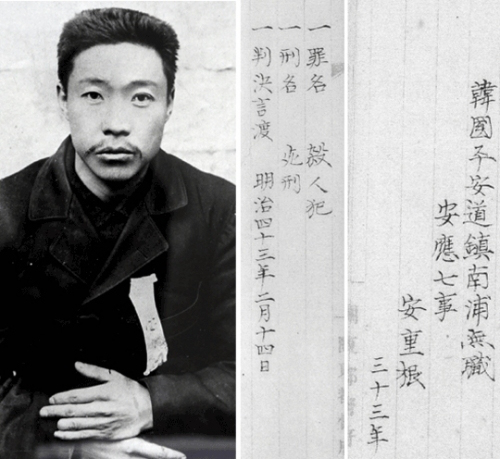 韓國平安道鎮南浦無職
安應七事
安重根
三十三年
一 罪名 殺人犯
一 刑名 死刑
一 判決言渡 明治四十三年二月十四日